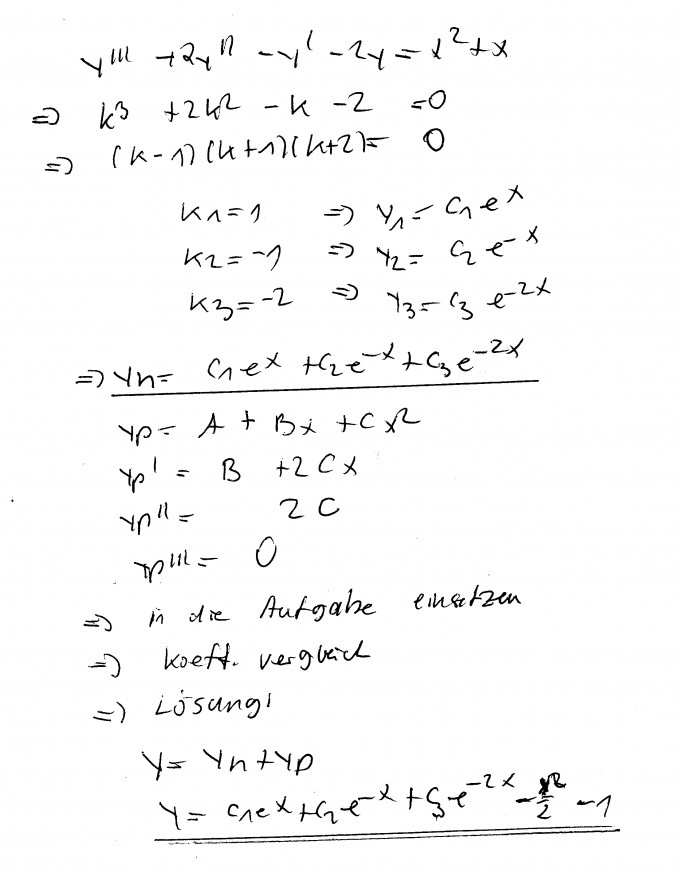 y''' + 2y'' - y' - 2y = x² + x
=> k³ + 2k² - k - 2 = 0
=> (k-1)(k+1)(k+2) = 0
k1 = 1 => y₁ = C₁ e^x
k2 = -1 => y₂ = C₂ e^-x
k3 = -2 => y₃ = C₃ e^-2x
=> yh = C₁e^x + C₂e^-x + C₃e^-2x
yp = A + Bx + Cx²
yp' = B + 2Cx
yp'' = 2C
yp''' = 0
=> in die Aufgabe einsetzen
=> koeff. vergleich
=> Lösung!
y = yh + yp
y = C₁e^x + C₂e^-x + C₃e^-2x - x²/2 - 1